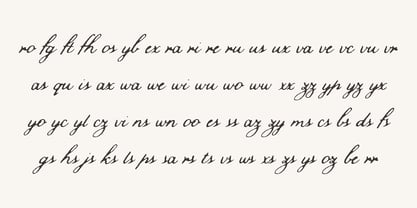 ro fg ft fh os yb ex ra ri re ru us ux va ve vc vu vr
as qu is ax wa we wi wu wo ww xx zz yp yz yx
yo yc yl cz vi ns wn oo es ss az zy ms cs bs ds fs
gs hs js ks ls ps sa rs ts vs ws xs zs ys oz be rr